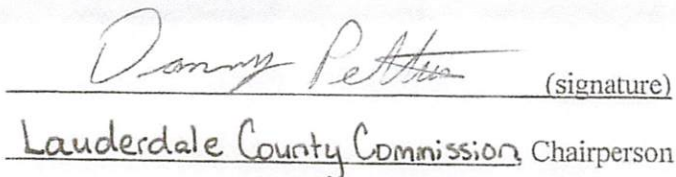 Danny Pettus (signature)
Lauderdale County Commission Chairperson